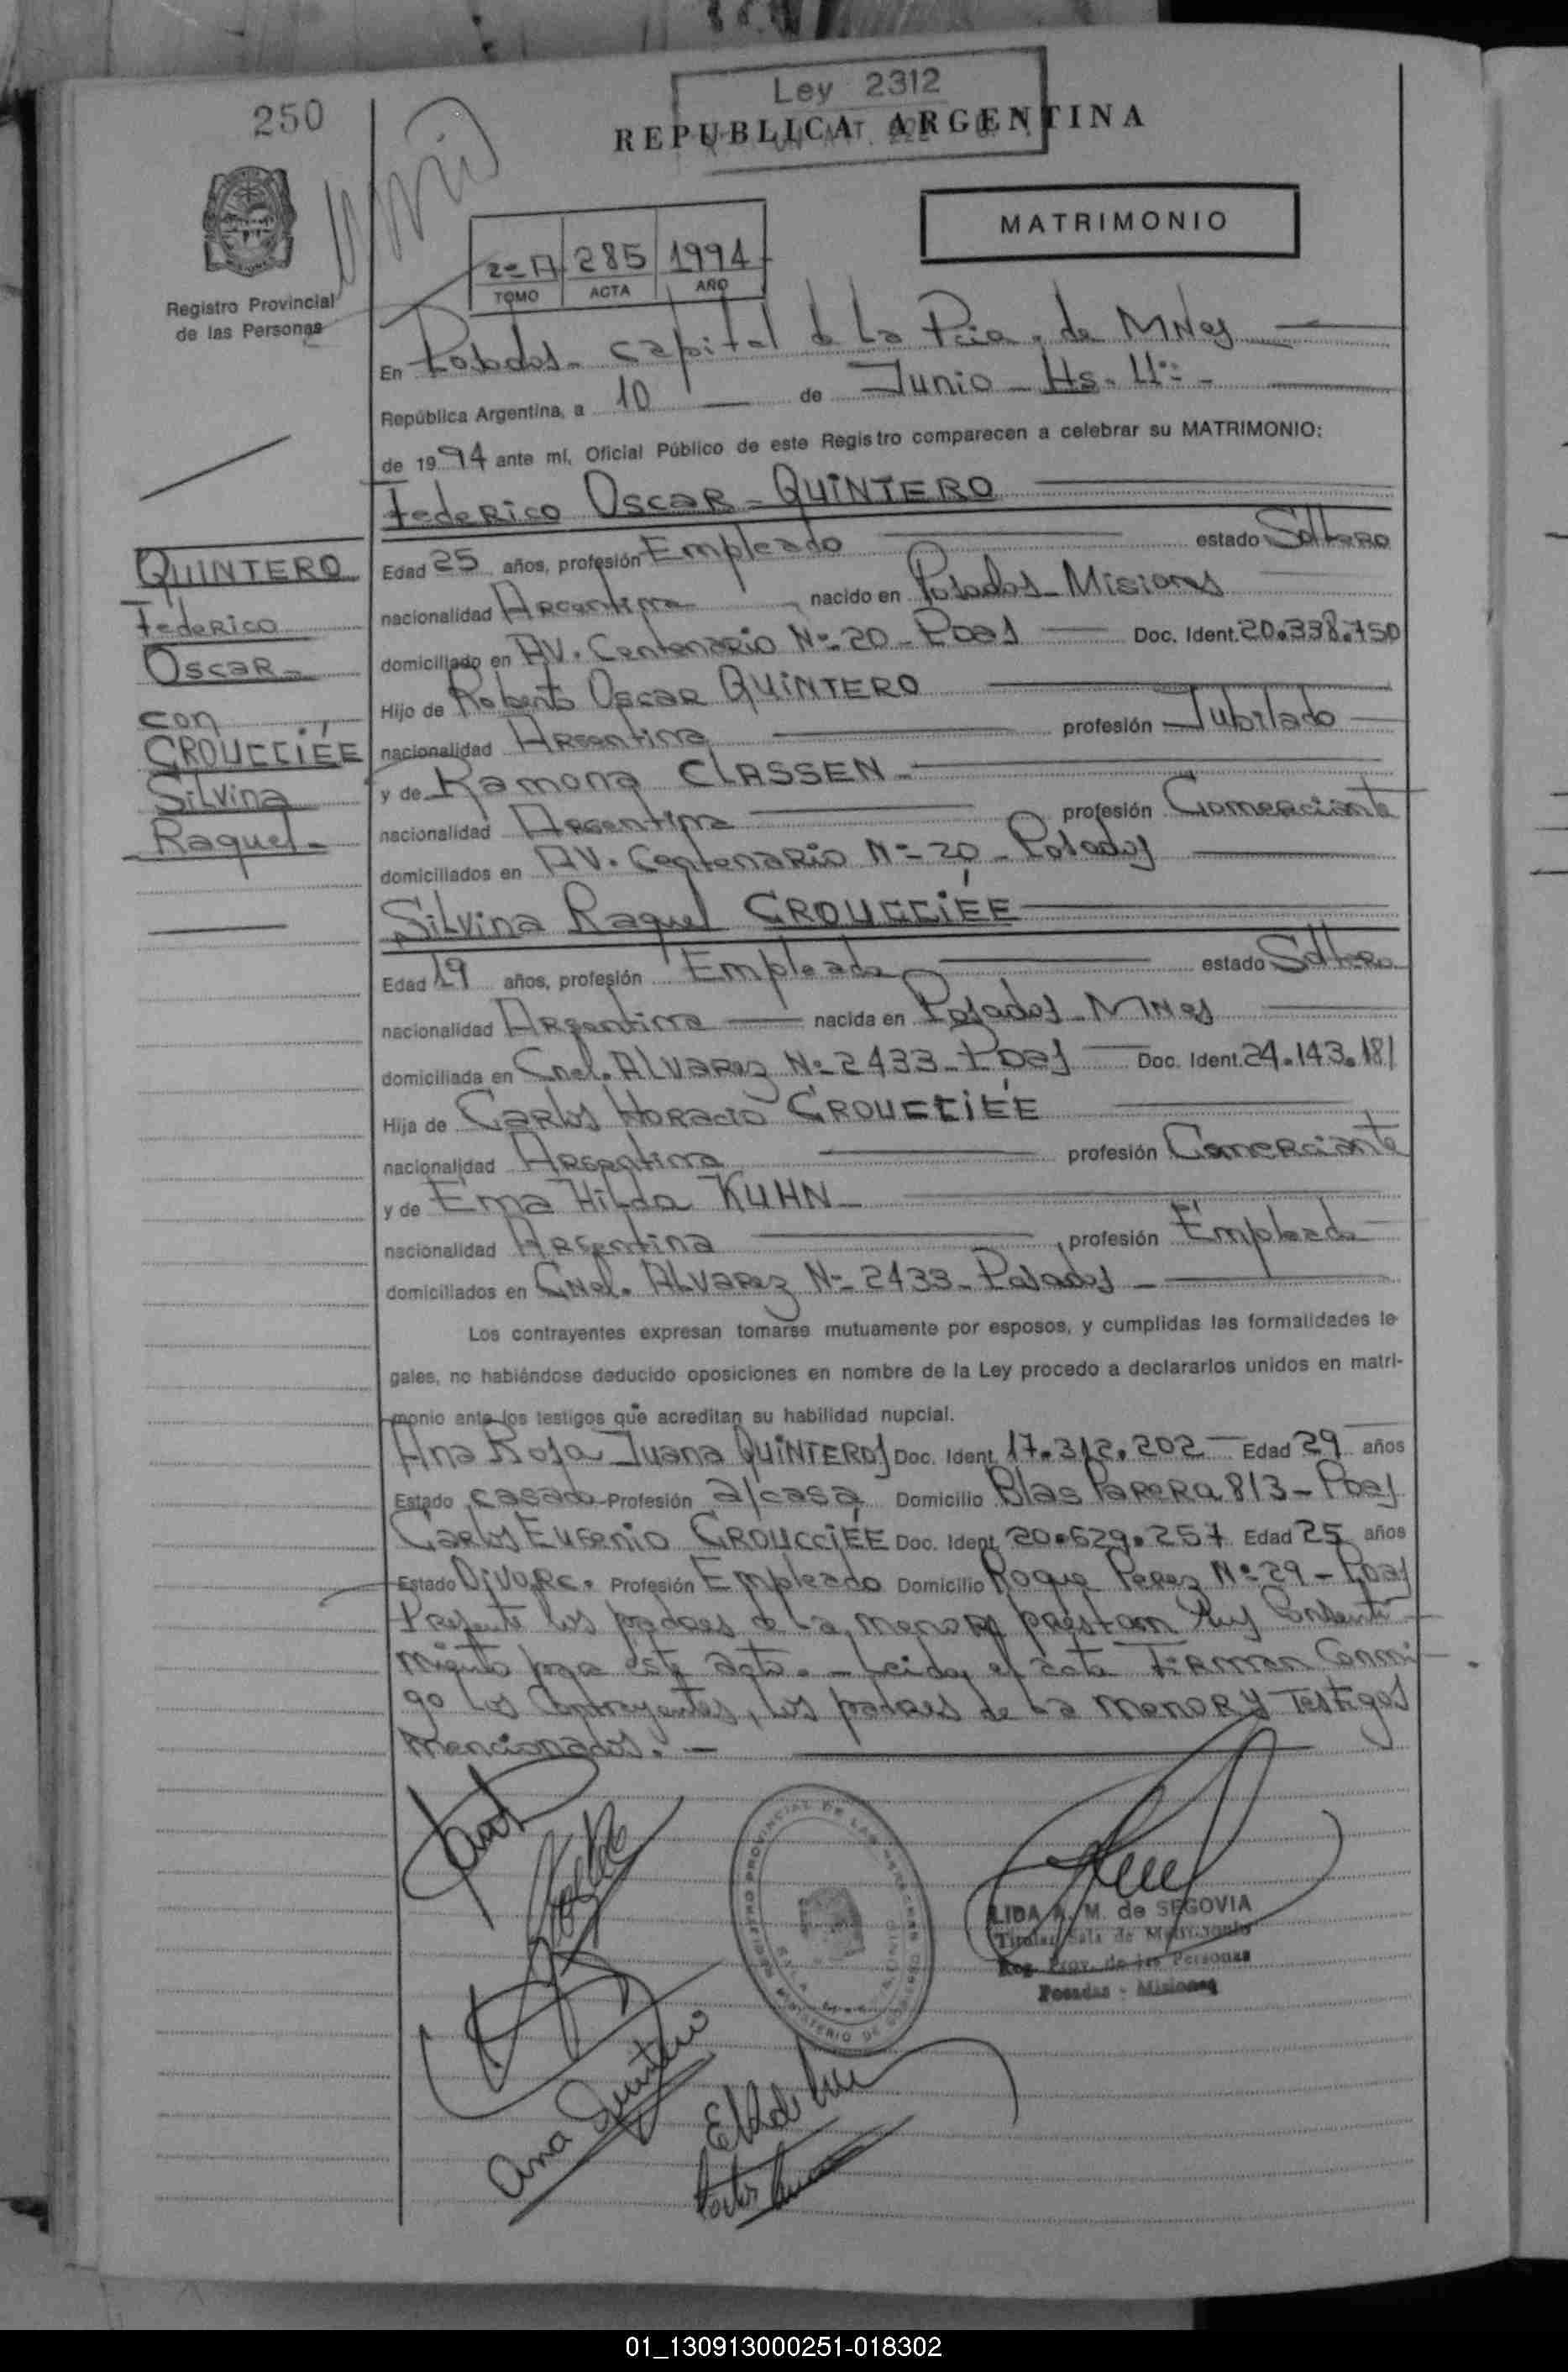 250
Ley 2312
REPUBLICA ARGENTINA
MATRIMONIO
2º A 285 1994
TOMO ACTA AÑO
Registro Provincial
de las Personas
En Posadas - Capital de la Pcia. de MNes
República Argentina, a 10 de Junio - Hs. 11:-
de 1994 ante mí, Oficial Público de este Registro comparecen a celebrar su MATRIMONIO:
Federico Oscar - QUINTERO
QUINTERO
Federico
Oscar -
con
GROUCCIÉE
Silvina
Raquel -
Edad 25 años, profesión Empleado estado Soltero
nacionalidad Argentina nacido en Posadas - Misiones
domiciliado en AV. Centenario Nº 20 - Pdas Doc. Ident. 20.338.750
Hijo de Roberto Oscar QUINTERO
nacionalidad Argentina profesión Jubilado
y de Ramona CLASSEN -
nacionalidad Argentina profesión Comerciante
domiciliados en AV. Centenario Nº 20 - Posadas
Silvina Raquel GROUCCIÉE
Edad 19 años, profesión Empleada estado Soltera
nacionalidad Argentina nacida en Posadas - MNes
domiciliada en Cnel. ALVArez Nº 2433 - Pdas Doc. Ident. 24.143.181
Hija de Carlos Horacio GROUCCIÉE
nacionalidad Argentina profesión Comerciante
y de Ema Hilda KUHN -
nacionalidad Argentina profesión Empleada
domiciliados en Cnel. ALVArez Nº 2433 - Posadas -
Los contrayentes expresan tomarse mutuamente por esposos, y cumplidas las formalidades le-
gales, no habiéndose deducido oposiciones en nombre de la Ley procedo a declararlos unidos en matri-
monio ante los testigos que acreditan su habilidad nupcial.
Ana Rosa Juana QUINTEROS Doc. Ident. 17.312.202 Edad 29 años
Estado casada Profesión a/casa Domicilio Blas Parera 813 - Pdas
Carlos Eugenio GROUCCIÉE Doc. Ident. 20.629.257 Edad 25 años
Estado Divorc. Profesión Empleado Domicilio Roque Perez Nº 29 - Pdas
Presente los padres de la menor prestan su Consenti-
miento para este acto. - Leida el acta Firman Conmi-
go los Contrayentes, los padres de la menor y Testigos
mencionados. -
REGISTRO PROVINCIAL DE LAS PERSONAS
MINISTERIO DE GOBIERNO
LIDA A. M. de SEGOVIA
Titular Sala de Matrimonio
Reg. Prov. de las Personas
Posadas - Misiones
Ana Quintero
01_130913000251-018302